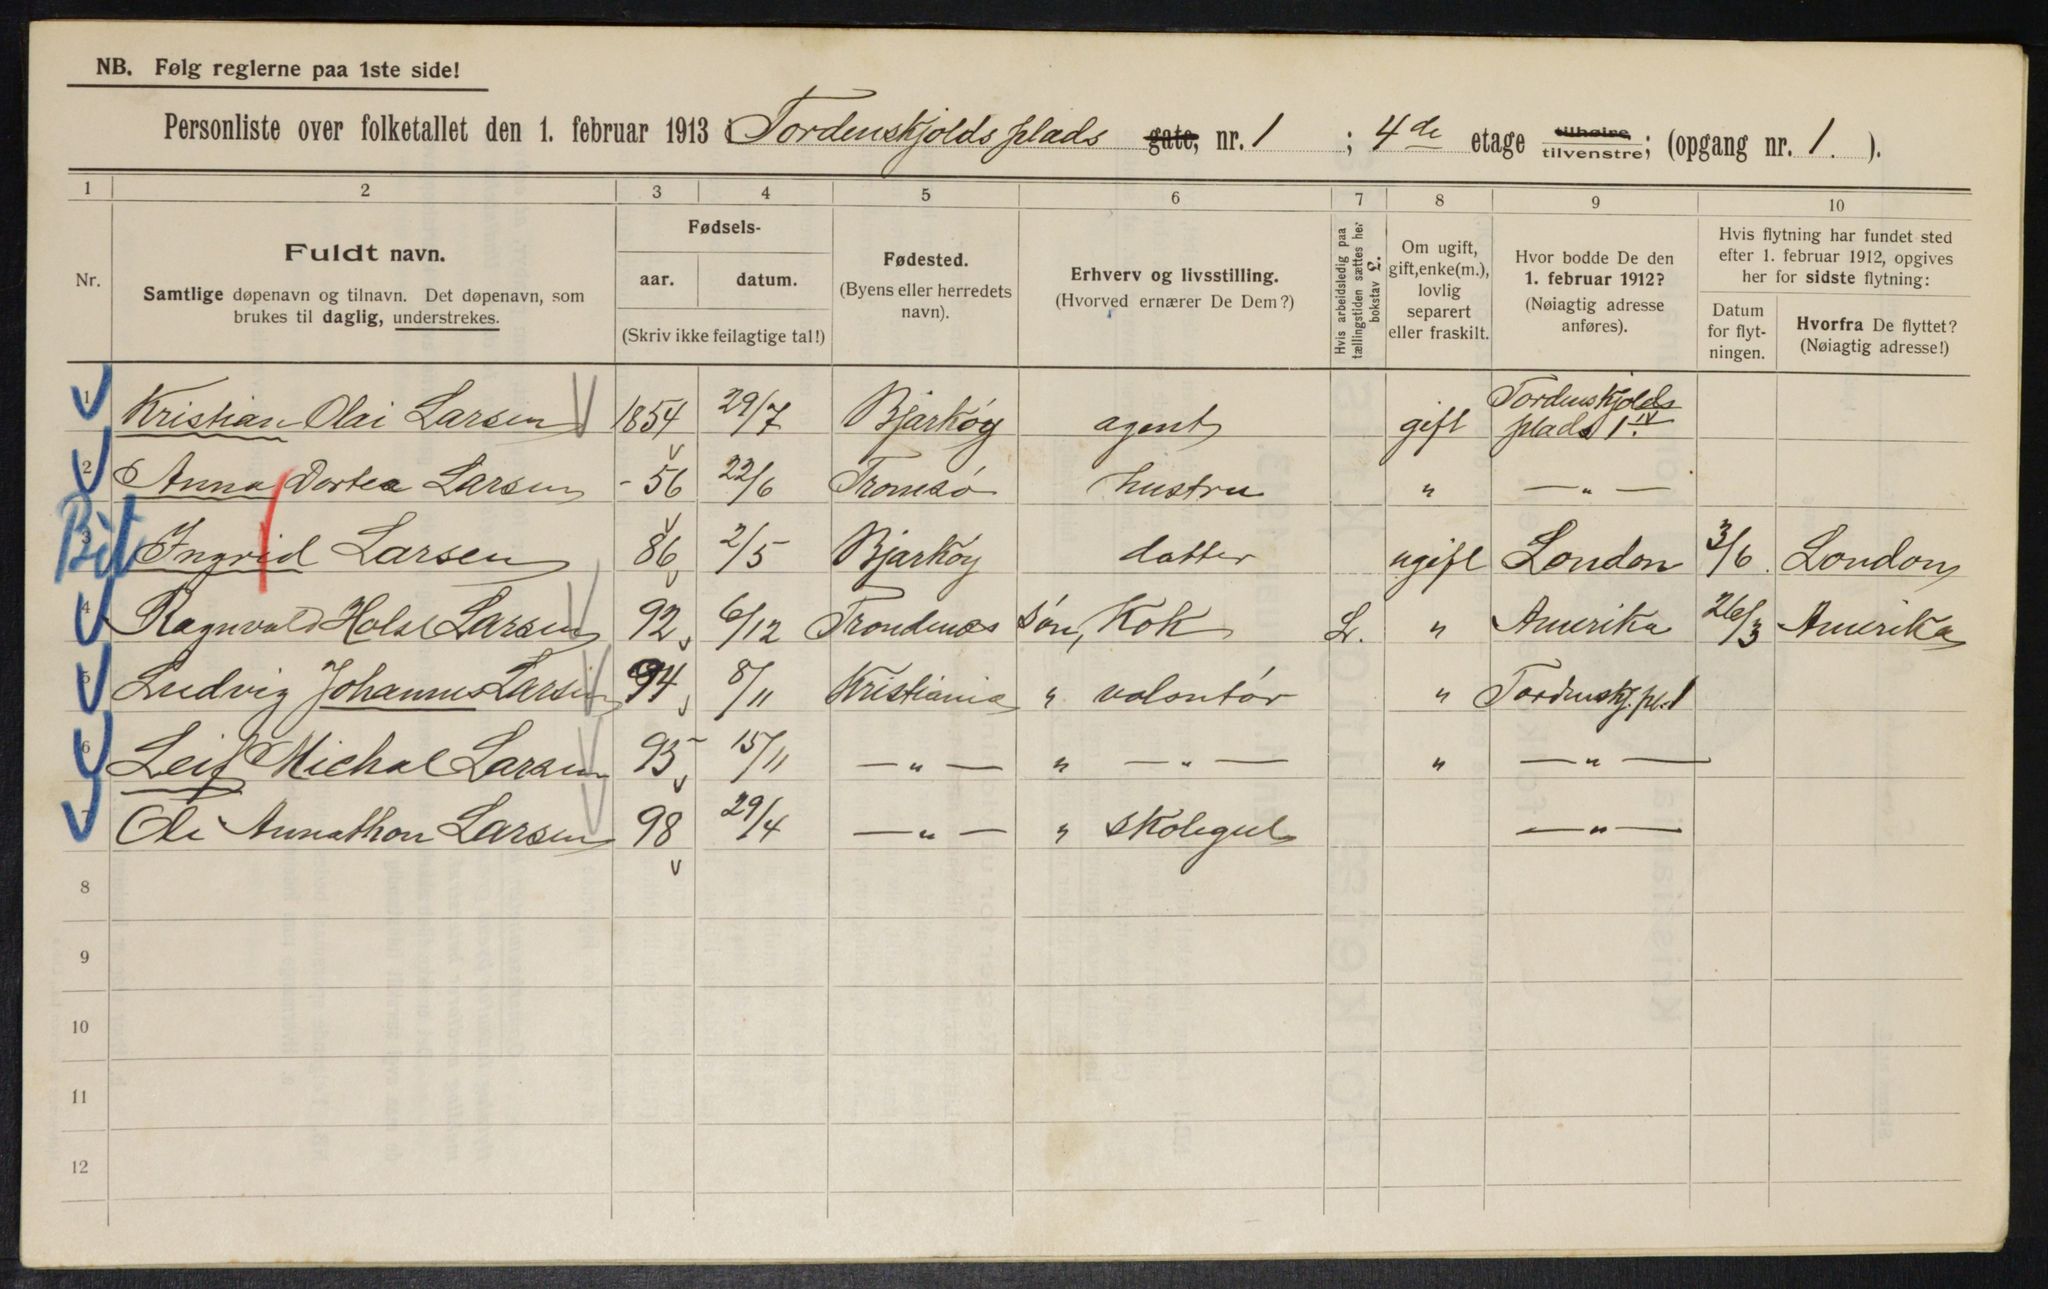 NB. Følg reglerne paa 1ste side!
Personliste over folketallet den 1. februar 1913 Tordenskjolds plads gate, nr. 1 ; 4de etage tilhøire tilvenstre; (opgang nr. 1. ).
1 2 3 4 5 6 7 8 9 10
Nr.
Fuldt navn.
Samtlige døpenavn og tilnavn. Det døpenavn, som
brukes til daglig, understrekes.
Fødsels-
aar. datum.
(Skriv ikke feilagtige tal!)
Fødested.
(Byens eller herredets
navn).
Erhverv og livsstilling.
(Hvorved ernærer De Dem?)
Hvis arbeidsledig paa
tællingstiden sættes her
bokstav L.
Om ugift,
gift, enke(m.),
lovlig
separert
eller fraskilt.
Hvor bodde De den
1. februar 1912?
(Nøiagtig adresse
anføres).
Hvis flytning har fundet sted
efter 1. februar 1912, opgives
her for sidste flytning:
Datum
for flyt-
ningen.
Hvorfra De flyttet?
(Nøiagtig adresse!)
1 Kristian Olai Larsen 1854 29/7 Bjarköy agent gift Tordenskjolds
plads 1 IV
2 Anna Dortea Larsen - 56 22/6 Tromsö hustru " — " —
Bit 3 Ingrid Larsen 86 2/5 Bjarköy datter ugift London 3/6. London
4 Ragnvald Holst Larsen 92 6/12 Trondenes sön, Kok L. " Amerika 26/3 Amerika
5 Ludvig Johannes Larsen 94 8/11 Kristiania " volontör " Tordenskj. pl. 1
6 Leif Michal Larsen 95 15/11 — " — " — " — " — " —
7 Ole Annathon Larsen 98 29/4 — " — " skolegut — " —
8
9
10
11
12